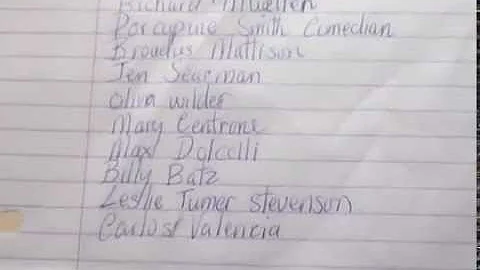 Richard Mwellen
Porcupine Smith Comedian
Broadus Mattison
Jen Seariman
Oliva wilder
Mary Centrone
Alax Dolcelli
Billy Batz
Leslie Tumer Stevenson
Carlos Valencia